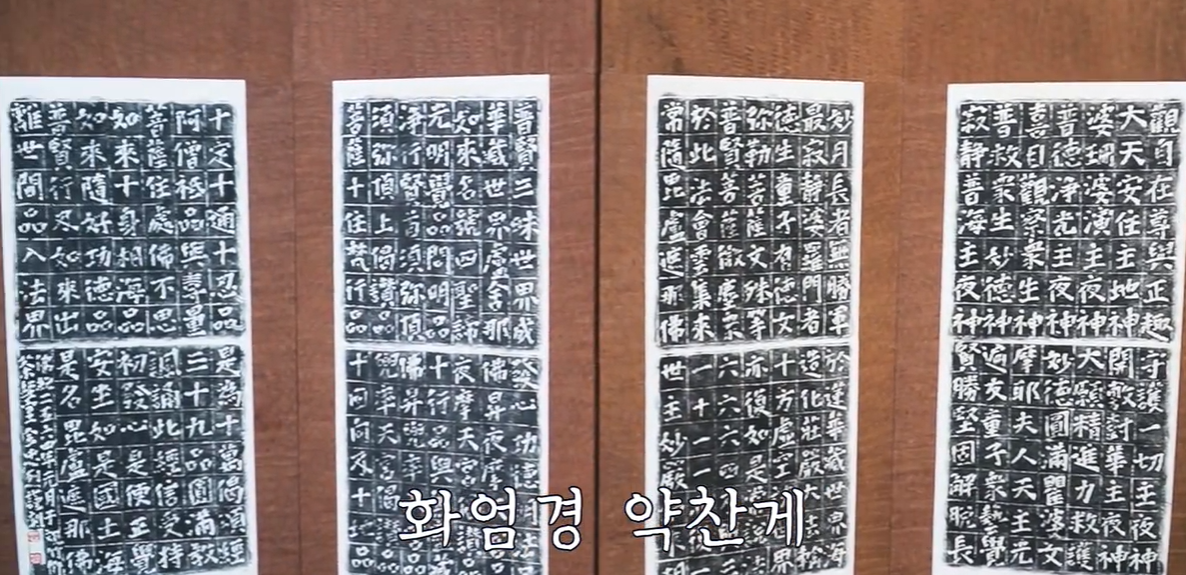 觀自在尊與正趣
大天安住主地神
婆珊婆演主夜神
普德淨光主夜神
喜目觀察衆生神
普救衆生妙德神
寂静普海主夜神
守護一切主夜神
開敷討華主夜神
大願精進力救護
妙德圓滿瞿婆女
摩耶夫人天主光
遍友童子衆藝覺
賢勝堅固解脫長
妙月長者無勝軍
最寂靜婆羅門者
德生童子有德女
弥勒菩薩文殊等
普賢菩薩微塵衆
於此法會雲集來
常隨毘盧遮那佛
於蓮華藏世界海
造化莊嚴大法輪
十方虛空諸世界
亦復如是
六六六四
一十一一
世主妙嚴
普賢三昧世界成
華藏世界盧舍那
如來名號四聖諦
光明覺品問明品
淨行賢首須弥頂
須弥頂上偈讚品
菩薩十住梵行品
發心功德明法
佛昇夜摩
夜摩天宮
十行品與
佛昇兜率
兜率天宮偈讚品
十回向及十地品
十定十通十忍品
阿僧祇品與壽量
菩薩住處佛不思
如來十身相海品
如來隨好功德品
普賢行及如來出
離世間品入法界
是為十萬偈頌經
三十九品圓滿敎
諷誦此經信受持
初發心是便正覺
安坐如是國土海
是名毘盧遮那佛
화엄경 약찬게